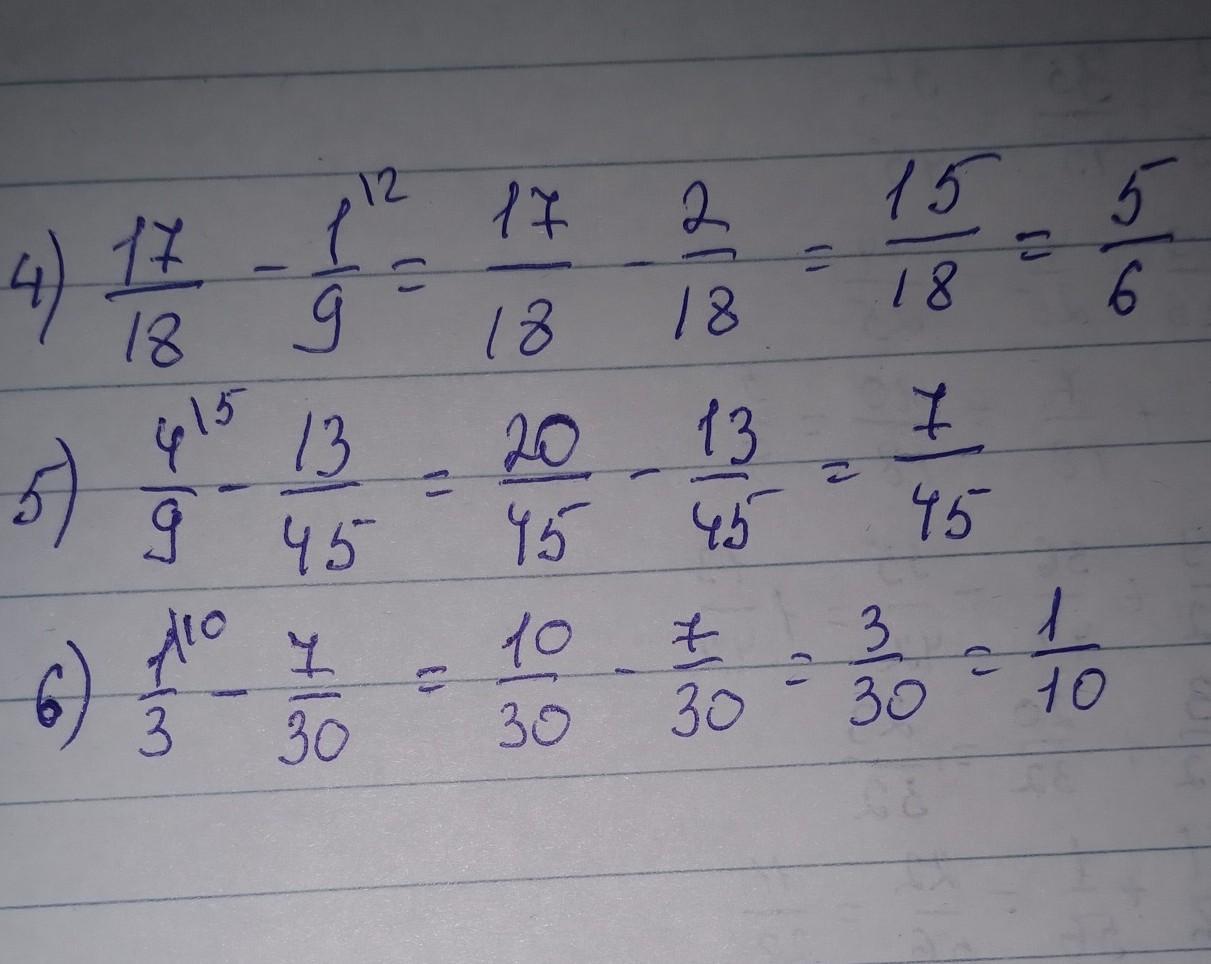 4) 17/18 - 1\2/9 = 17/18 - 2/18 = 15/18 = 5/6
5) 4\5/9 - 13/45 = 20/45 - 13/45 = 7/45
6) 1\10/3 - 7/30 = 10/30 - 7/30 = 3/30 = 1/10